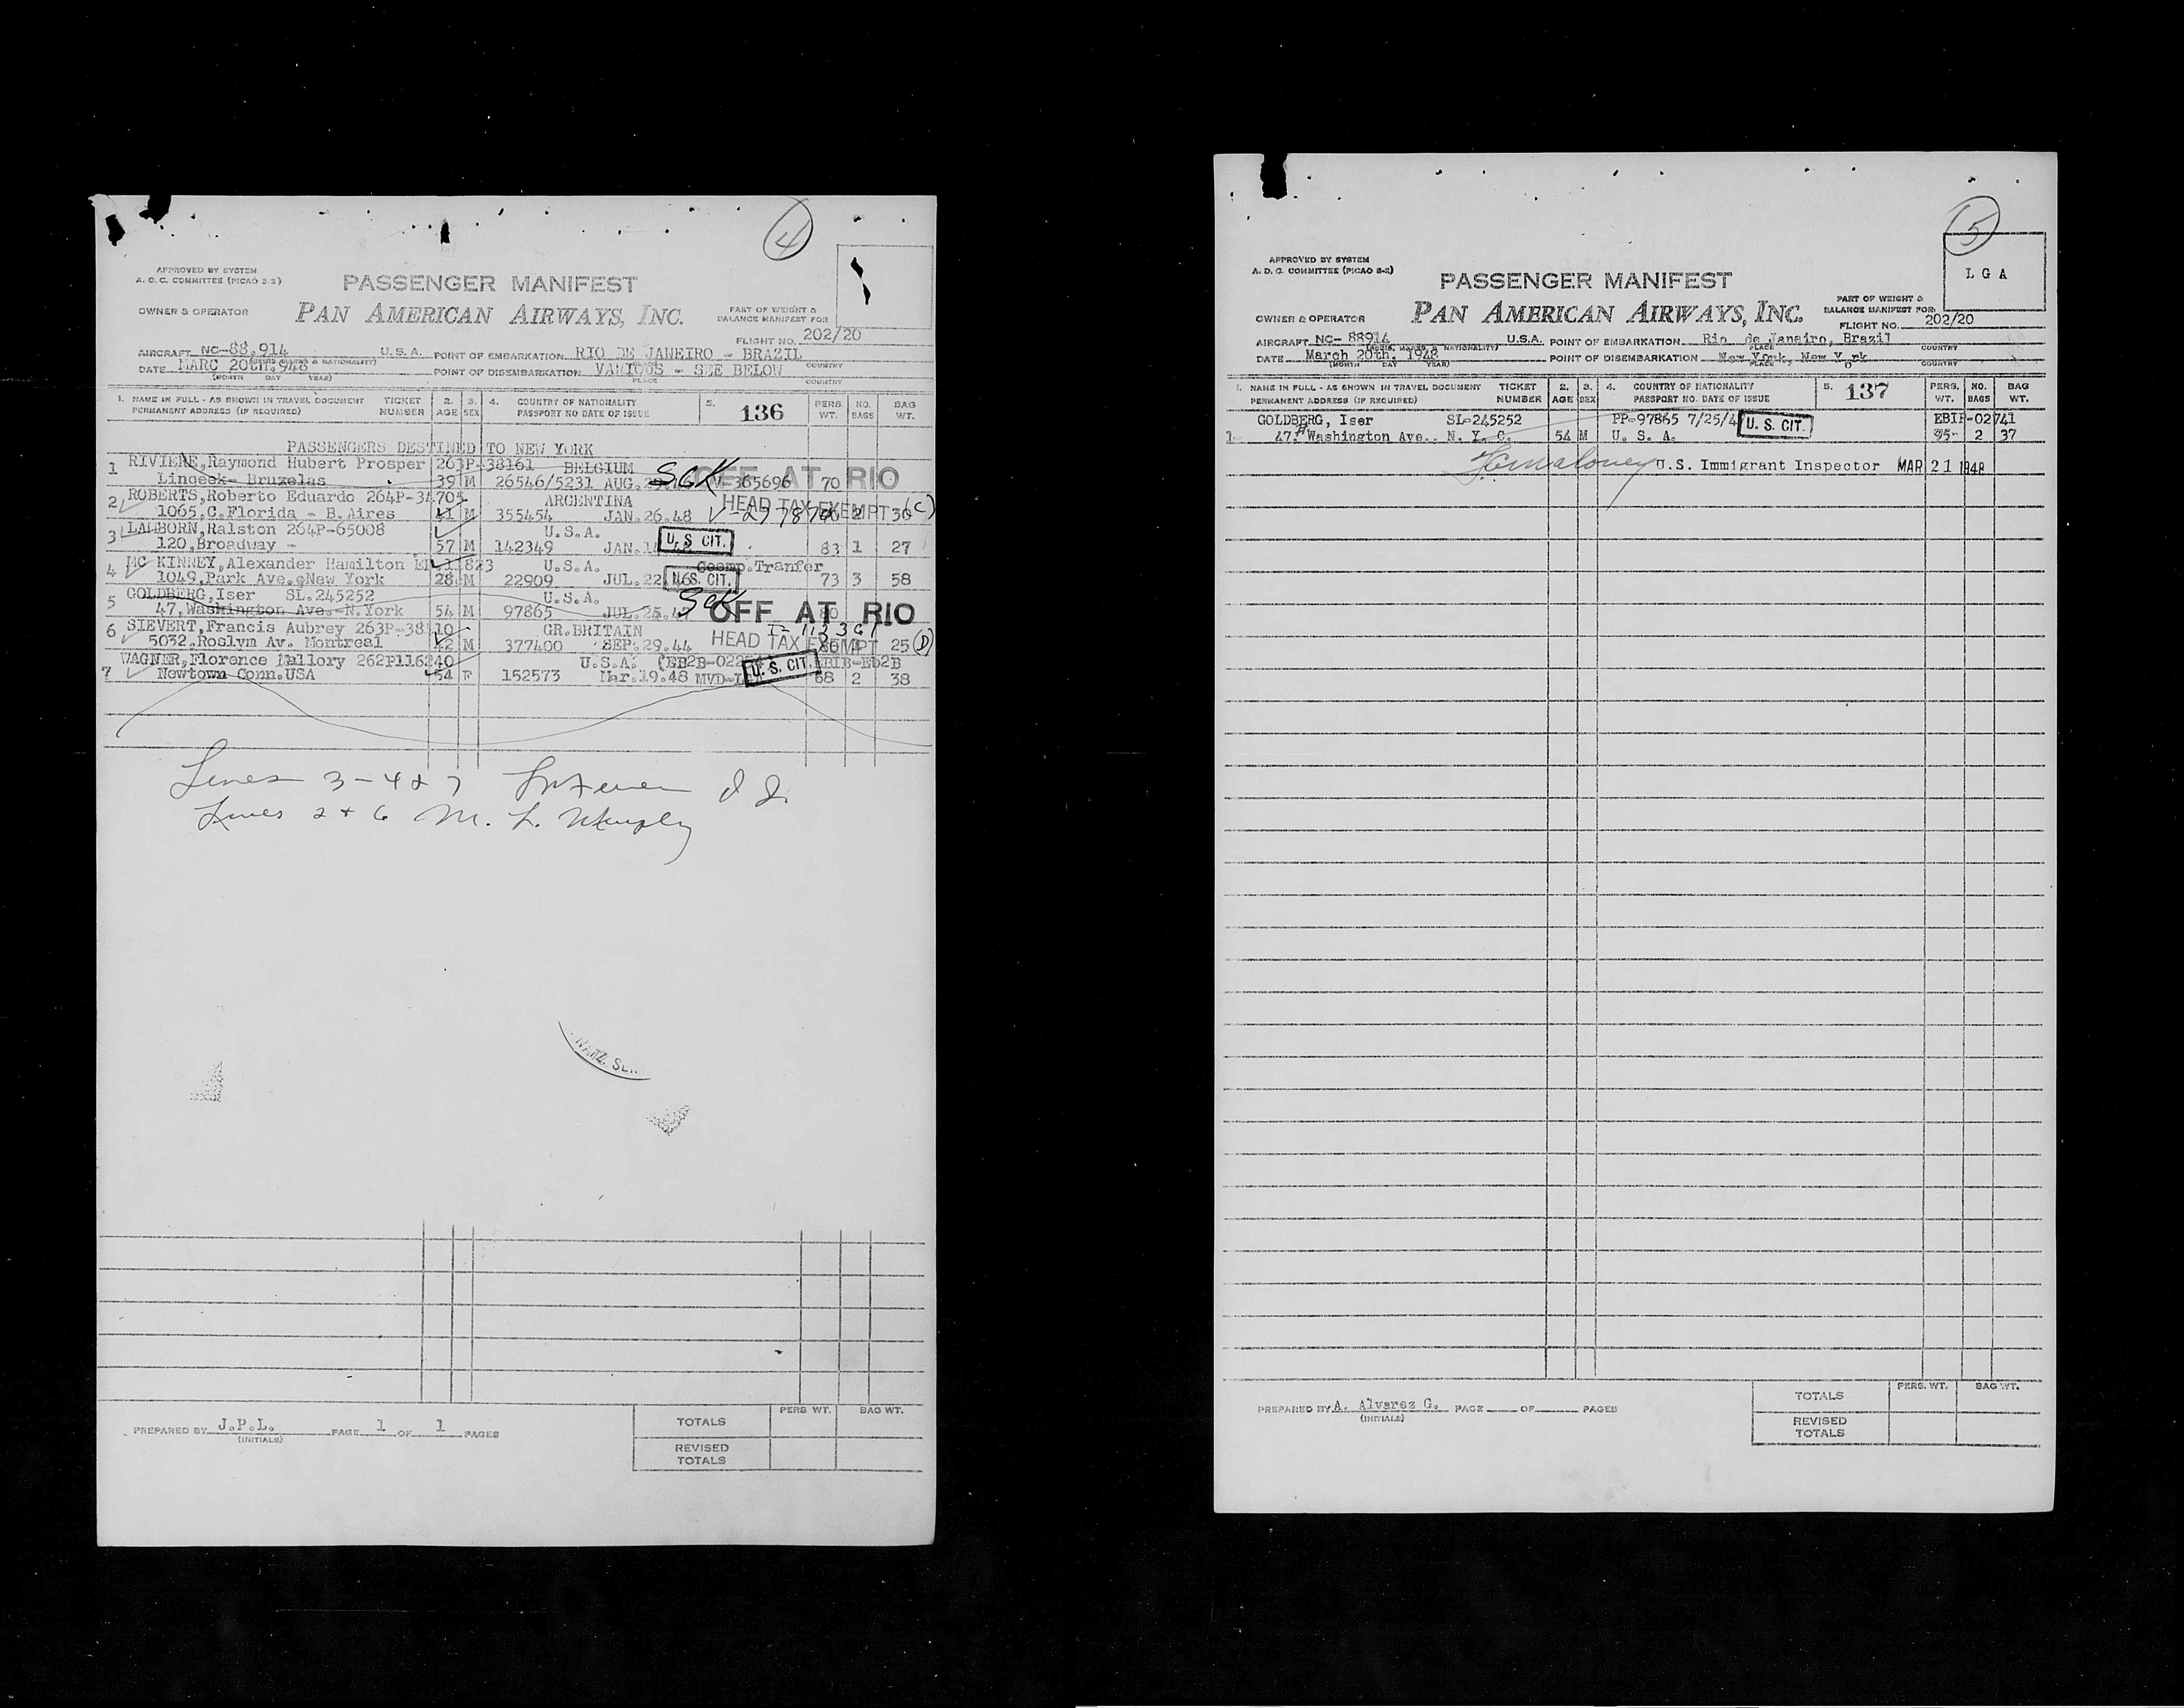 4
APPROVED BY SYSTEM
A. D. C. COMMITTEE (PICAO S-2)
PASSENGER MANIFEST
OWNER & OPERATOR
PAN AMERICAN AIRWAYS, INC.
PART OF WEIGHT &
BALANCE MANIFEST FOR
FLIGHT NO. 202/20
AIRCRAFT NC-88,914 U.S.A. POINT OF EMBARKATION RIO DE JANEIRO - BRAZIL
(MARKS & NATIONALITY) COUNTRY
DATE MARC 20th.948 POINT OF DISEMBARKATION VARIOUS - SEE BELOW
(MONTH DAY YEAR) PLACE COUNTRY
1. NAME IN FULL - AS SHOWN IN TRAVEL DOCUMENT TICKET 2. 3. 4. COUNTRY OF NATIONALITY 5. 136 PERS. NO. BAG
PERMANENT ADDRESS (IF REQUIRED) NUMBER AGE SEX PASSPORT NO DATE OF ISSUE WT. BAGS WT.
PASSENGERS DESTINED TO NEW YORK
1 RIVIERE,Raymond Hubert Prosper 263P-38161 BELGIUM SCK OFF AT RIO
Linoeek- Bruxelas 39 M 26546/5231 AUG. 365696 70
2 ROBERTS,Roberto Eduardo 264P-34705 ARGENTINA HEAD TAX EXEMPT (C)
1065,C.Florida - B.Aires 41 M 355454 JAN.26.48 2 30
3 LAMBORN,Ralston 264P-65008 U.S.A. U. S. CIT.
120,Broadway - 57 M 142349 JAN. 83 1 27
4 MC KINNEY,Alexander Hamilton 11823 U.S.A. Tranfer
1049,Park Ave. New York 28 M 22909 JUL.22.46 U.S. CIT. 73 3 58
5 GOLDBERG,Iser SL.245252 U.S.A. SCK OFF AT RIO
47,Washington Ave.-N.York 54 M 97865 JUL.25.47 80
6 SIEVERT,Francis Aubrey 263P-38110 GR.BRITAIN HEAD TAX EXEMPT
5032.Roslyn Av. Montreal 42 M 377400 SEP.29.44 25 (D)
7 WAGNER,Florence Mallory 262P116240 U.S.A. U. S. CIT. EBIB-EB2B
Newtown Conn.USA 54 F 152573 Mar.19.48 68 2 38
Lines 3-4 & 7
Lines 2 + 6 M. L. Murphy
PREPARED BY J.P.L. PAGE 1 OF 1 PAGES
(INITIALS)
PERS WT. BAG WT.
TOTALS
REVISED
TOTALS
5
L G A
APPROVED BY SYSTEM
A. D. C. COMMITTEE (PICAO S-2)
PASSENGER MANIFEST
OWNER & OPERATOR
PAN AMERICAN AIRWAYS, INC.
PART OF WEIGHT &
BALANCE MANIFEST FOR
FLIGHT NO. 202/20
AIRCRAFT NC- 88914 U.S.A. POINT OF EMBARKATION Rio de Janeiro, Brazil
(MARKS & NATIONALITY) PLACE COUNTRY
DATE March 20th. 1948 POINT OF DISEMBARKATION New York, New York
(MONTH DAY YEAR) PLACE COUNTRY
1. NAME IN FULL - AS SHOWN IN TRAVEL DOCUMENT TICKET 2. 3. 4. COUNTRY OF NATIONALITY 5. 137 PERS. NO. BAG
PERMANENT ADDRESS (IF REQUIRED) NUMBER AGE SEX PASSPORT NO. DATE OF ISSUE WT. BAGS WT.
GOLDBERG, Iser SL-245252 PP-97865 7/25/4 U. S. CIT. EBIF-02741
1- 47, Washington Ave. N. Y. C. 54 M U. S. A. 95- 2 37
U.S. Immigrant Inspector MAR 21 1948
PREPARED BY A. Alvarez G. PAGE OF PAGES
(INITIALS)
PERS. WT. BAG WT.
TOTALS
REVISED
TOTALS